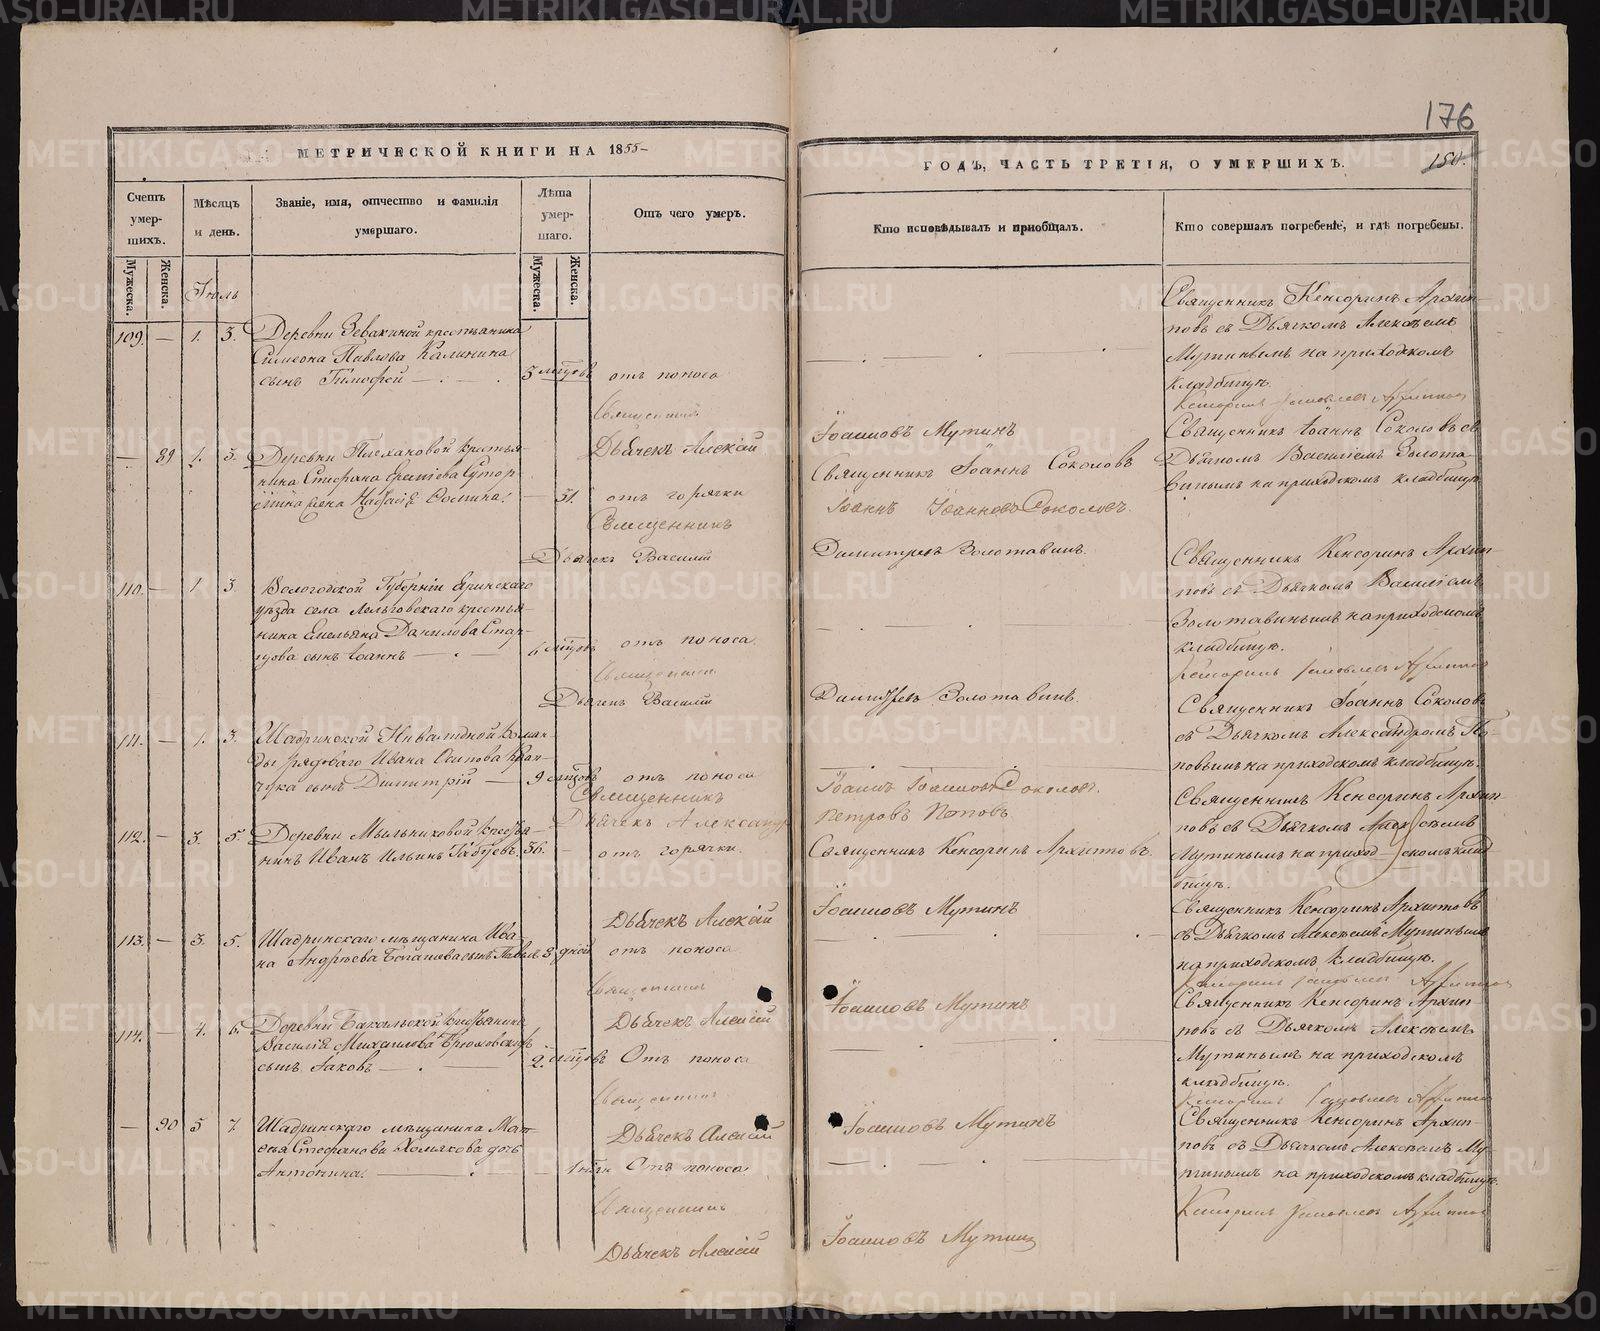 176
МЕТРИЧЕСКОЙ КНИГИ НА 1855
ГОДЪ, ЧАСТЬ ТРЕТІЯ, О УМЕРШИХЪ.
150.
Счетъ умер-шихъ.
Мѣсяцъ и день.
Званіе, имя, отчество и фамилія умершаго.
Лѣта умер-шаго.
Отъ чего умеръ.
Кто исповѣдывалъ и пріобщалъ.
Кто совершалъ погребеніе, и гдѣ погребены.
Мужеска. Женска.
Мужеска. Женска.
Іюль
109. — 1. 3. Деревни Зевакиной крестьянина
Симеона Павлова Калинина
сынъ Тимофей
5 мѣсяцовъ
отъ поноса
Священникъ Кенсоринъ Архип-
повъ съ Дьячкомъ Алексѣемъ
Мутинымъ на приходскомъ
кладбищѣ.
Священникъ
Дьячекъ Алексій Іоанновъ Мутинъ
— 89 1. 3. Деревни Плехановой крестья
нина Стефана
жена
51. отъ горячки
Священникъ Іоаннъ Соколовъ
Священникъ Іоаннъ Соколовъ съ
Дьячкомъ Василіемъ Золота-
винымъ на приходскомъ кладбищѣ
Священникъ Іоаннъ Іоанновъ Соколовъ.
Дьячекъ Василій Димитріевъ Золотавинъ.
110. — 1. 3. Вологодской Губерніи Яринскаго
уѣзда села крестья-
нина Емельяна Данилова Стар-
цова сынъ Іоаннъ
6 мѣсяцовъ отъ поноса
Священникъ Кенсоринъ Архип-
повъ съ Дьячкомъ Василіемъ
Золотавинымъ на приходскомъ
кладбищѣ.
Священникъ
Дьячекъ Василій Димитріевъ Золотавинъ.
111. — 1. 3. Шадринской Инвалидной Коман-
ды рядоваго Ивана Осипова
сынъ Димитрій
9 мѣсяцовъ отъ поноса
Священникъ Іоаннъ Соколовъ
съ Дьячкомъ Александромъ По-
повымъ на приходскомъ кладбищѣ.
Священникъ Іоаннъ Іоанновъ Соколовъ.
Дьячекъ Александръ Петровъ Поповъ
112. — 3. 5. Деревни Мыльниковой крестья-
нинъ Иванъ Ильинъ
56. отъ горячки.
Священникъ Кенсоринъ Архиповъ.
Священникъ Кенсоринъ Архип-
повъ съ Дьячкомъ Алексѣемъ
Мутинымъ на приходскомъ клад-
бищѣ.
Дьячекъ Алексій Іоанновъ Мутинъ
113. — 3. 5. Шадринскаго мѣщанина Ива-
на Андрѣева сынъ Павелъ
8 дней отъ поноса
Священникъ Кенсоринъ Архиповъ
съ Дьячкомъ Алексѣемъ Мутинымъ
на приходскомъ кладбищѣ.
Священникъ
Дьячекъ Алексій Іоанновъ Мутинъ
114. — 4. 6. Деревни Бакальской крестьянина
Василія Михаилова
сынъ Іаковъ
2. мѣсяцовъ Отъ поноса
Священникъ Кенсоринъ Архип-
повъ съ Дьячкомъ Алексѣемъ
Мутинымъ на приходскомъ
кладбищѣ.
Священникъ
Дьячекъ Алексій Іоанновъ Мутинъ
— 90 5 7. Шадринскаго мѣщанина Мат-
ѳея Стефанова Холмякова дочь
Антонина.
Отъ поноса
Священникъ Кенсоринъ Архип-
повъ съ Дьячкомъ Алексѣемъ Му-
тинымъ на приходскомъ кладбищѣ.
Священникъ
Дьячекъ Алексій Іоанновъ Мутинъ
METRIKI.GASO-URAL.RU